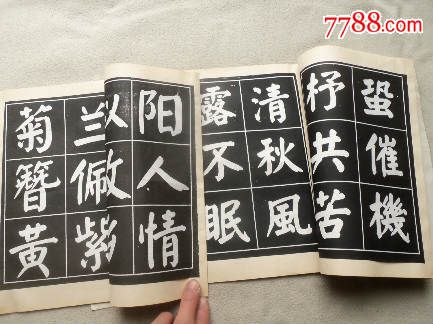 7788.com
蛩催機
杼共苦
清秋風
露不眠
阳人情
兰佩紫
菊簪黄